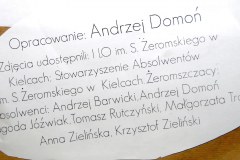 Opracowanie: Andrzej Domoń
Zdjęcia udostępnili: I LO im. S. Żeromskiego w
Kielcach: Stowarzyszenie Absolwentów
im. S. Żeromskiego w Kielcach, Żeromszczacy:
Absolwenci: Andrzej Barwicki, Andrzej Domoń
Jagoda Jóźwiak, Tomasz Rutczyński, Małgorzata
Anna Zielińska, Krzysztof Zieliński